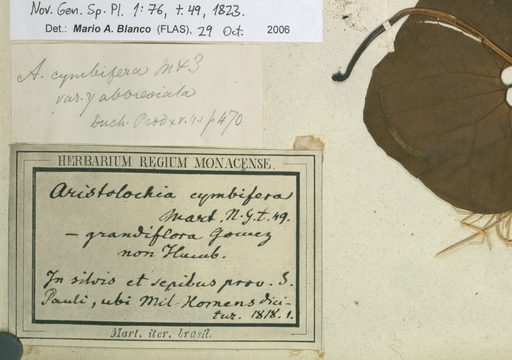 Nov. Gen. Sp. Pl. 1:76, t.49, 1823.
Det.: Mario A. Blanco (FLAS), 29 Oct. 2006
A. cymbifera M & Z
var. γ abbreviata
Duch. Prod xv. 1. p 470
HERBARIUM REGIUM MONACENSE.
Aristolochia cymbifera
Mart. N. G. t. 49.
– grandiflora Gomez
non Humb.
In silvis et sepibus prov. S.
Pauli, ubi Mil-Homens dici-
tur. 1818. 1.
Mart. iter. brasil.